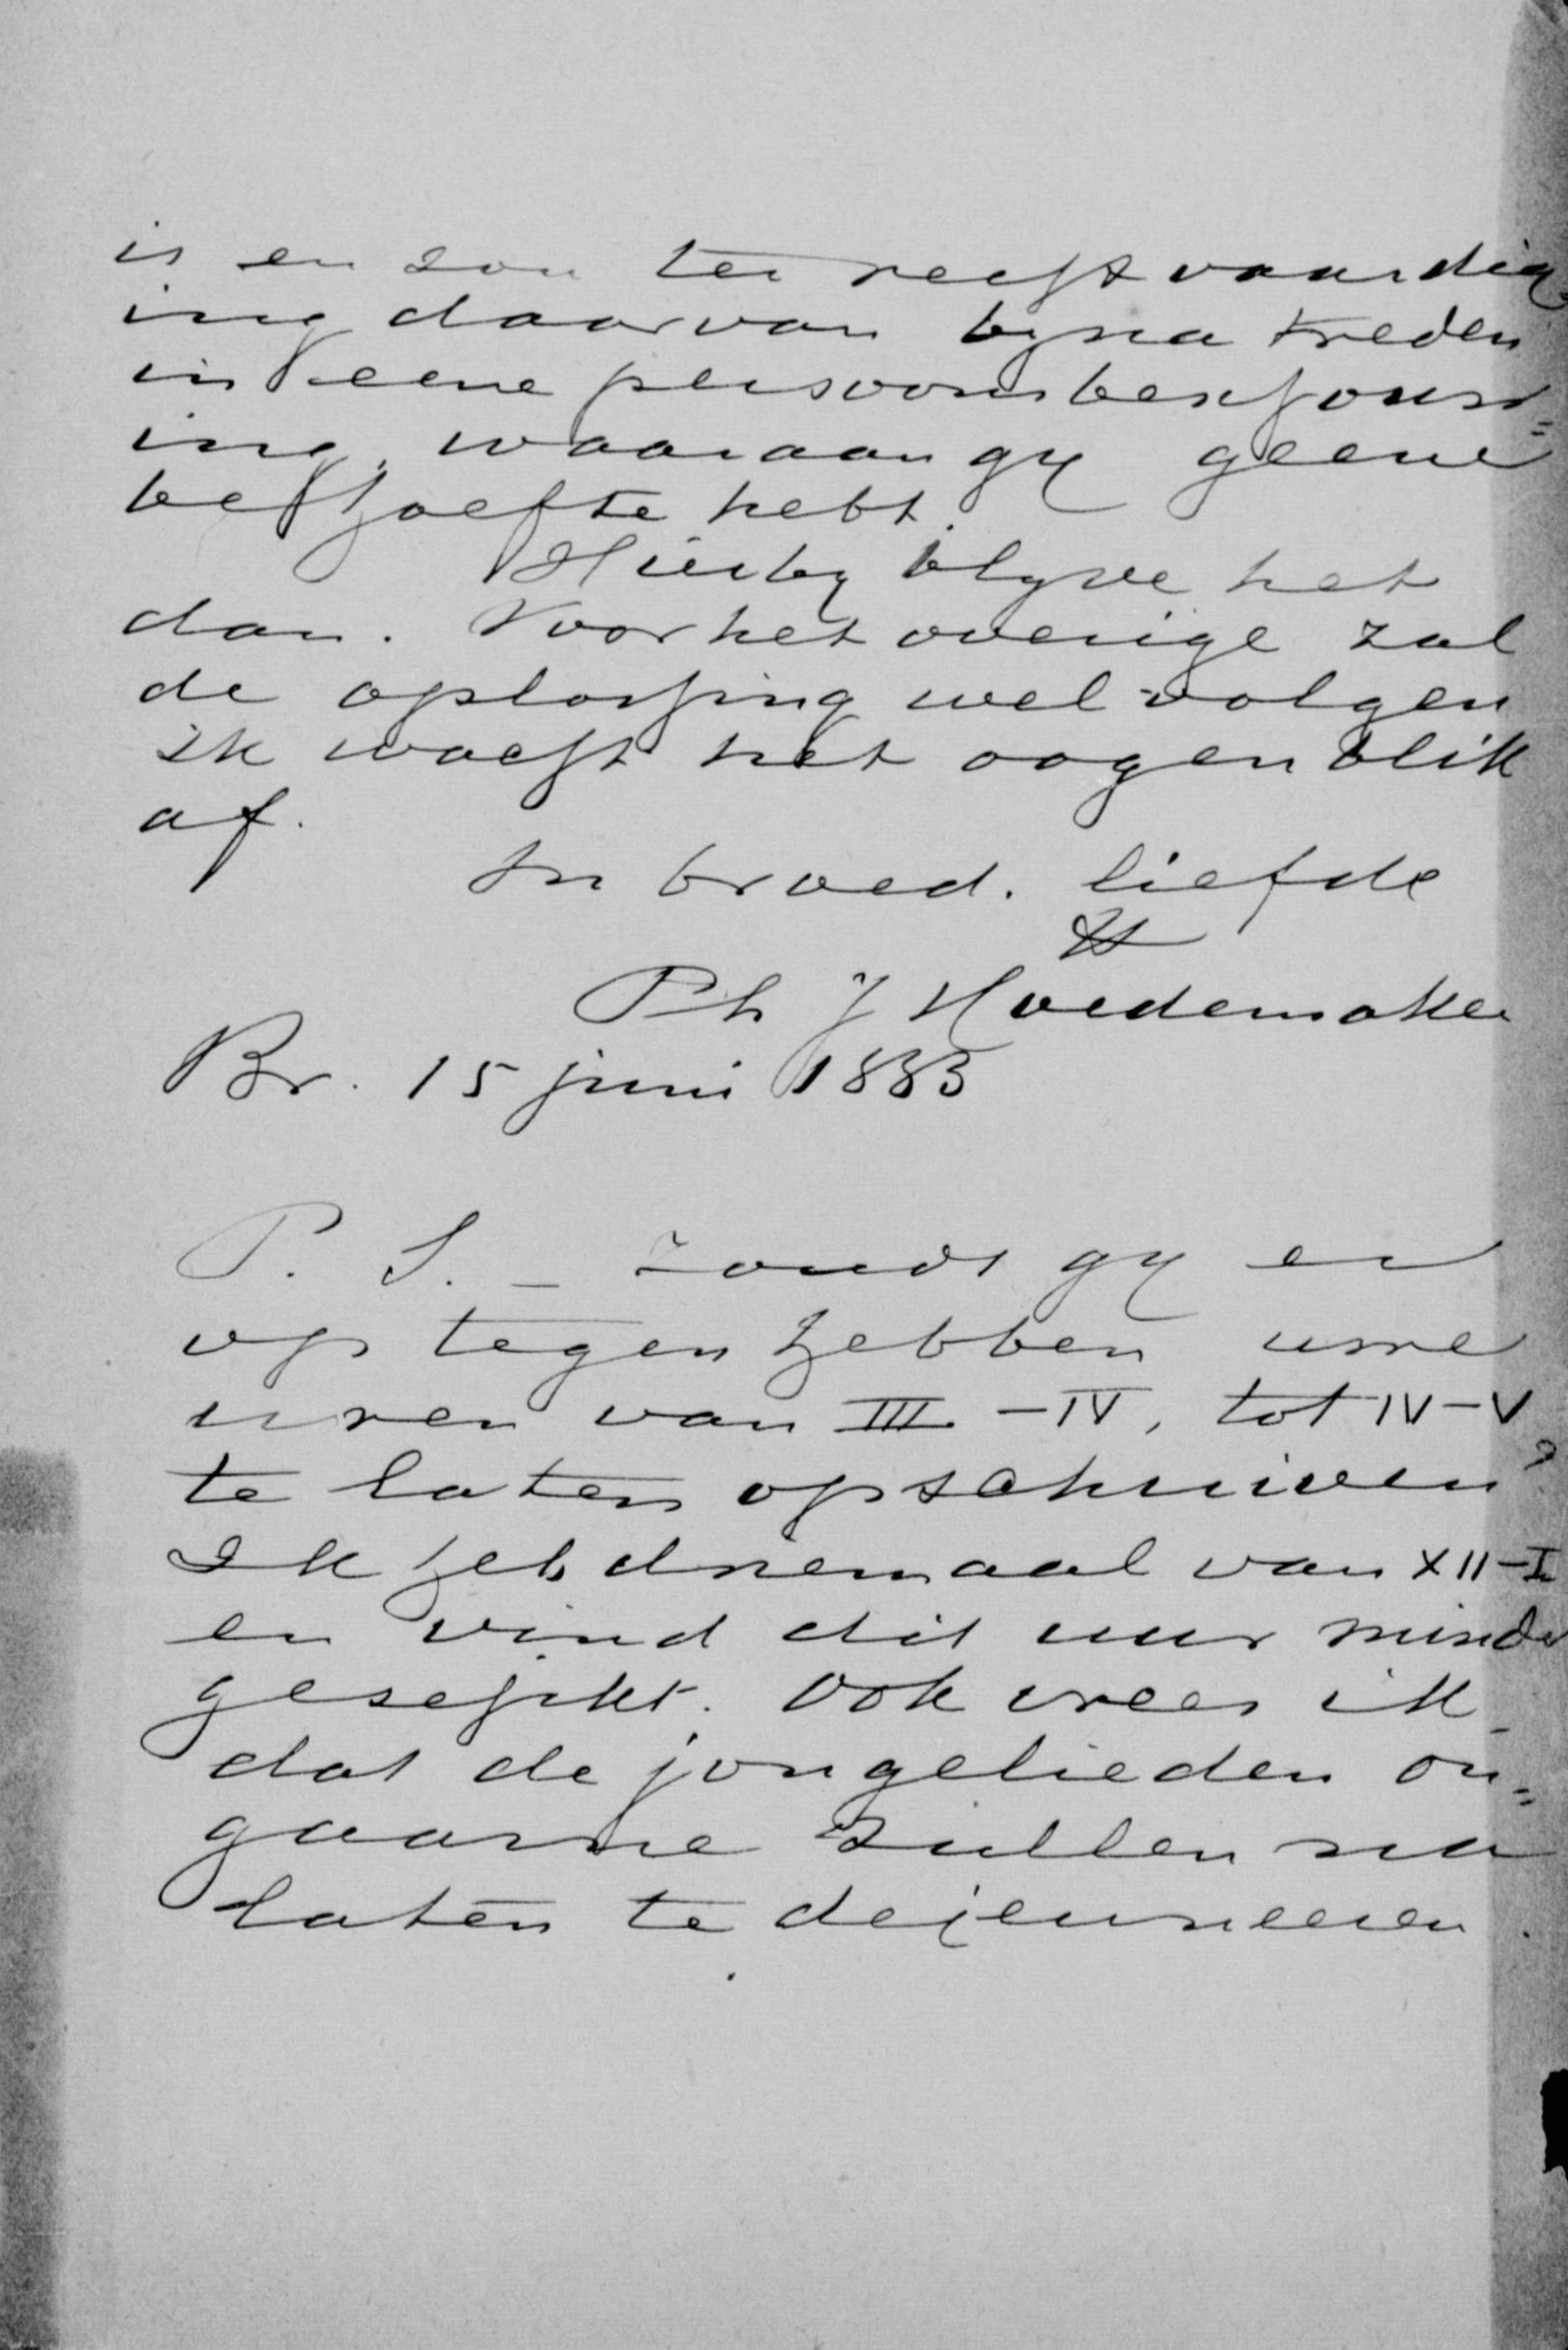 is en zou ter rechtvaardig
ing daarvan byna treden
in eene persoonsbeschouw=
ing, waaraan gy geene
behoefte hebt.
Hierby blyve het
dan. Voor het overige zal
de oplossing wel volgen
ik wacht het oogenblik
af.
In broed. liefde
tt
Ph J Hoedemaker
Br. 15 juni 1883
P. S. – zoudt gy er
op tegen hebben uwe
uren van III – IV, tot IV – V
te laten opschuiven?
Ik heb driemaal van XII – I
en vind dit uur minder
geschikt. Ook vrees ik
dat de jongelieden on=
gaarne zullen na
laten te dejeuneeren.